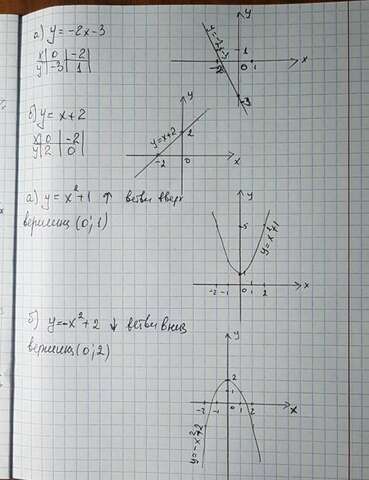 а) y = -2x-3
x | 0 | -2 |
y | -3 | 1 |
y
1
0 1
x
-3
y=-2x-3
б) y = x+2
x | 0 | -2 |
y | 2 | 0 |
y
2
y=x+2
-2
0
x
а) y = x²+1 ↑ ветви вверх
вершина (0; 1)
y
5
1
-2 -1 0 1 2
x
y=x²+1
б) y=-x²+2 ↓ ветви вниз
вершина (0; 2)
y
2
1
-2 -1 0 1 2
x
y=-x²+2